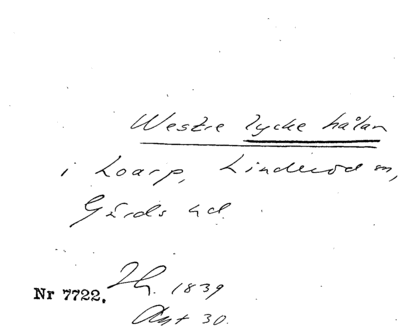 Westre lycke hålan
i Loarp, Linderöd sn,
Gärds hd.
Nr 7722. Th. 1839
Akt 30.